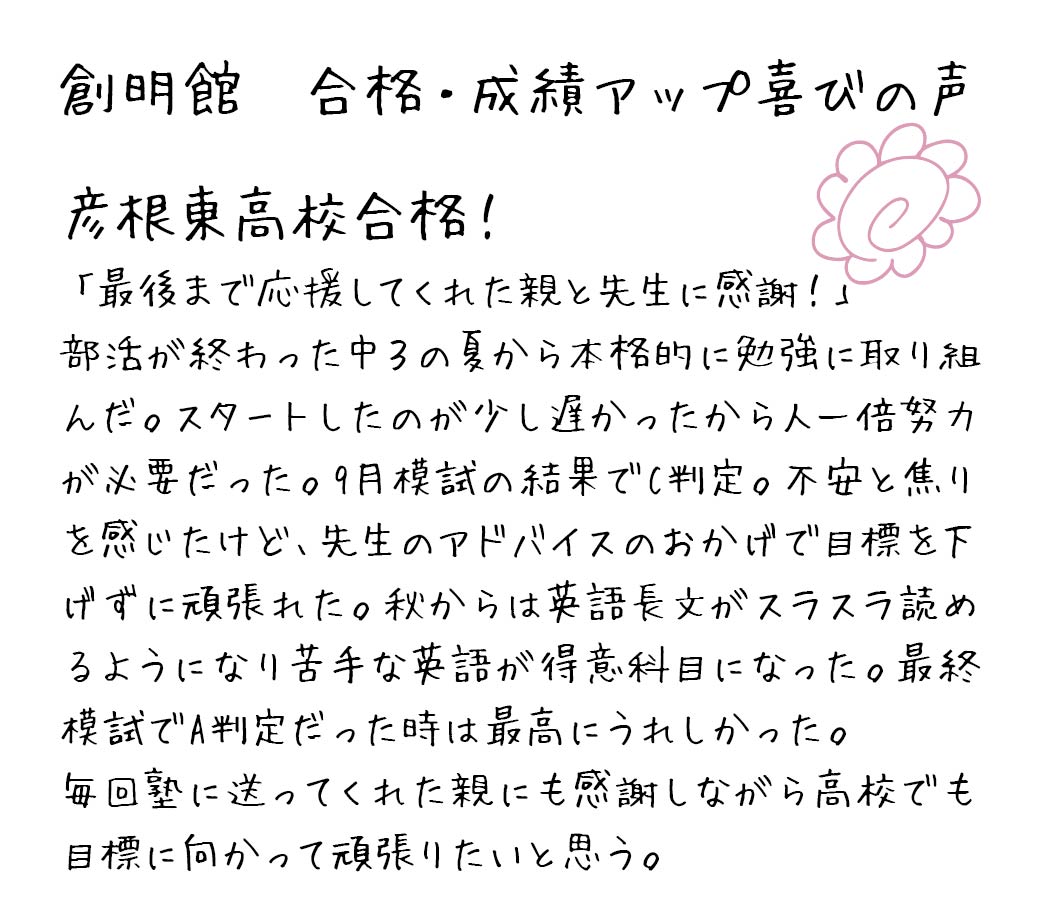 創明館　合格・成績アップ喜びの声
彦根東高校合格！
「最後まで応援してくれた親と先生に感謝！」
部活が終わった中3の夏から本格的に勉強に取り組
んだ。スタートしたのが少し遅かったから人一倍努力
が必要だった。9月模試の結果でC判定。不安と焦り
を感じたけど、先生のアドバイスのおかげで目標を下
げずに頑張れた。秋からは英語長文がスラスラ読め
るようになり苦手な英語が得意科目になった。最終
模試でA判定だった時は最高にうれしかった。
毎回塾に送ってくれた親にも感謝しながら高校でも
目標に向かって頑張りたいと思う。